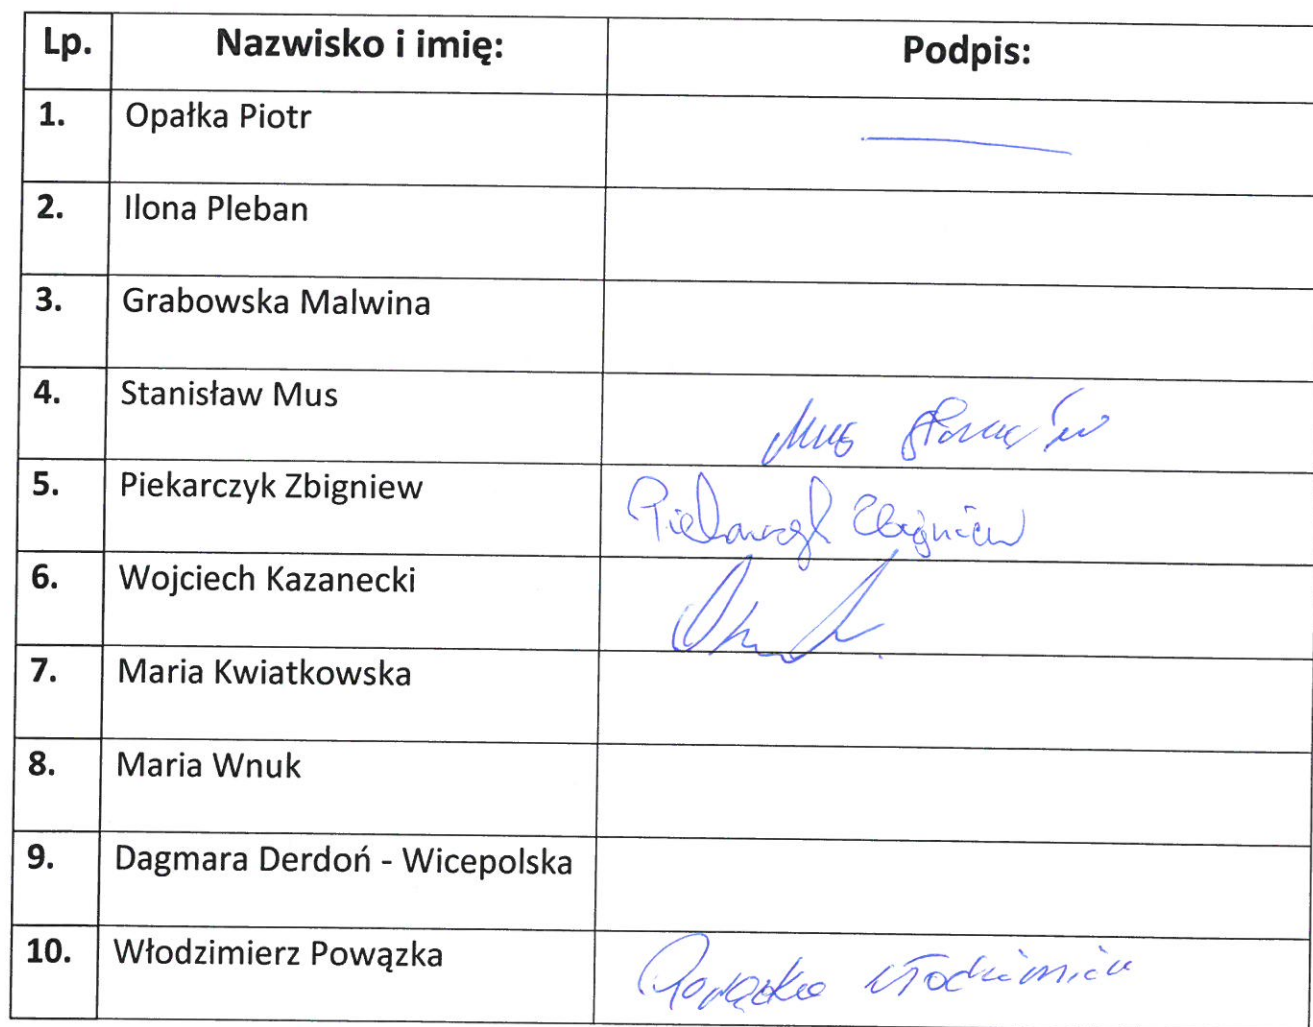 Lp. Nazwisko i imię: Podpis:
1. Opałka Piotr
2. Ilona Pleban
3. Grabowska Malwina
4. Stanisław Mus Mus Stanisław
5. Piekarczyk Zbigniew Piekarczyk Zbigniew
6. Wojciech Kazanecki
7. Maria Kwiatkowska
8. Maria Wnuk
9. Dagmara Derdoń - Wicepolska
10. Włodzimierz Powązka Powązka Włodzimierz